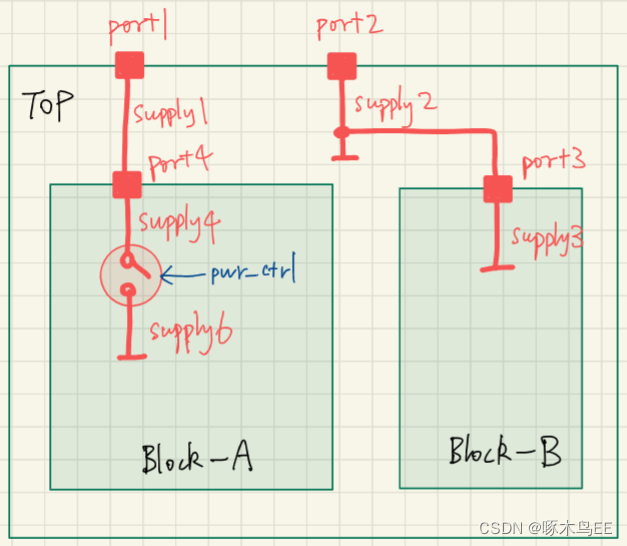 port1
port2
TOP
supply1
supply2
port4
port3
supply4
supply3
pwr_ctrl
supply6
Block-A
Block-B
CSDN @啄木鸟EE